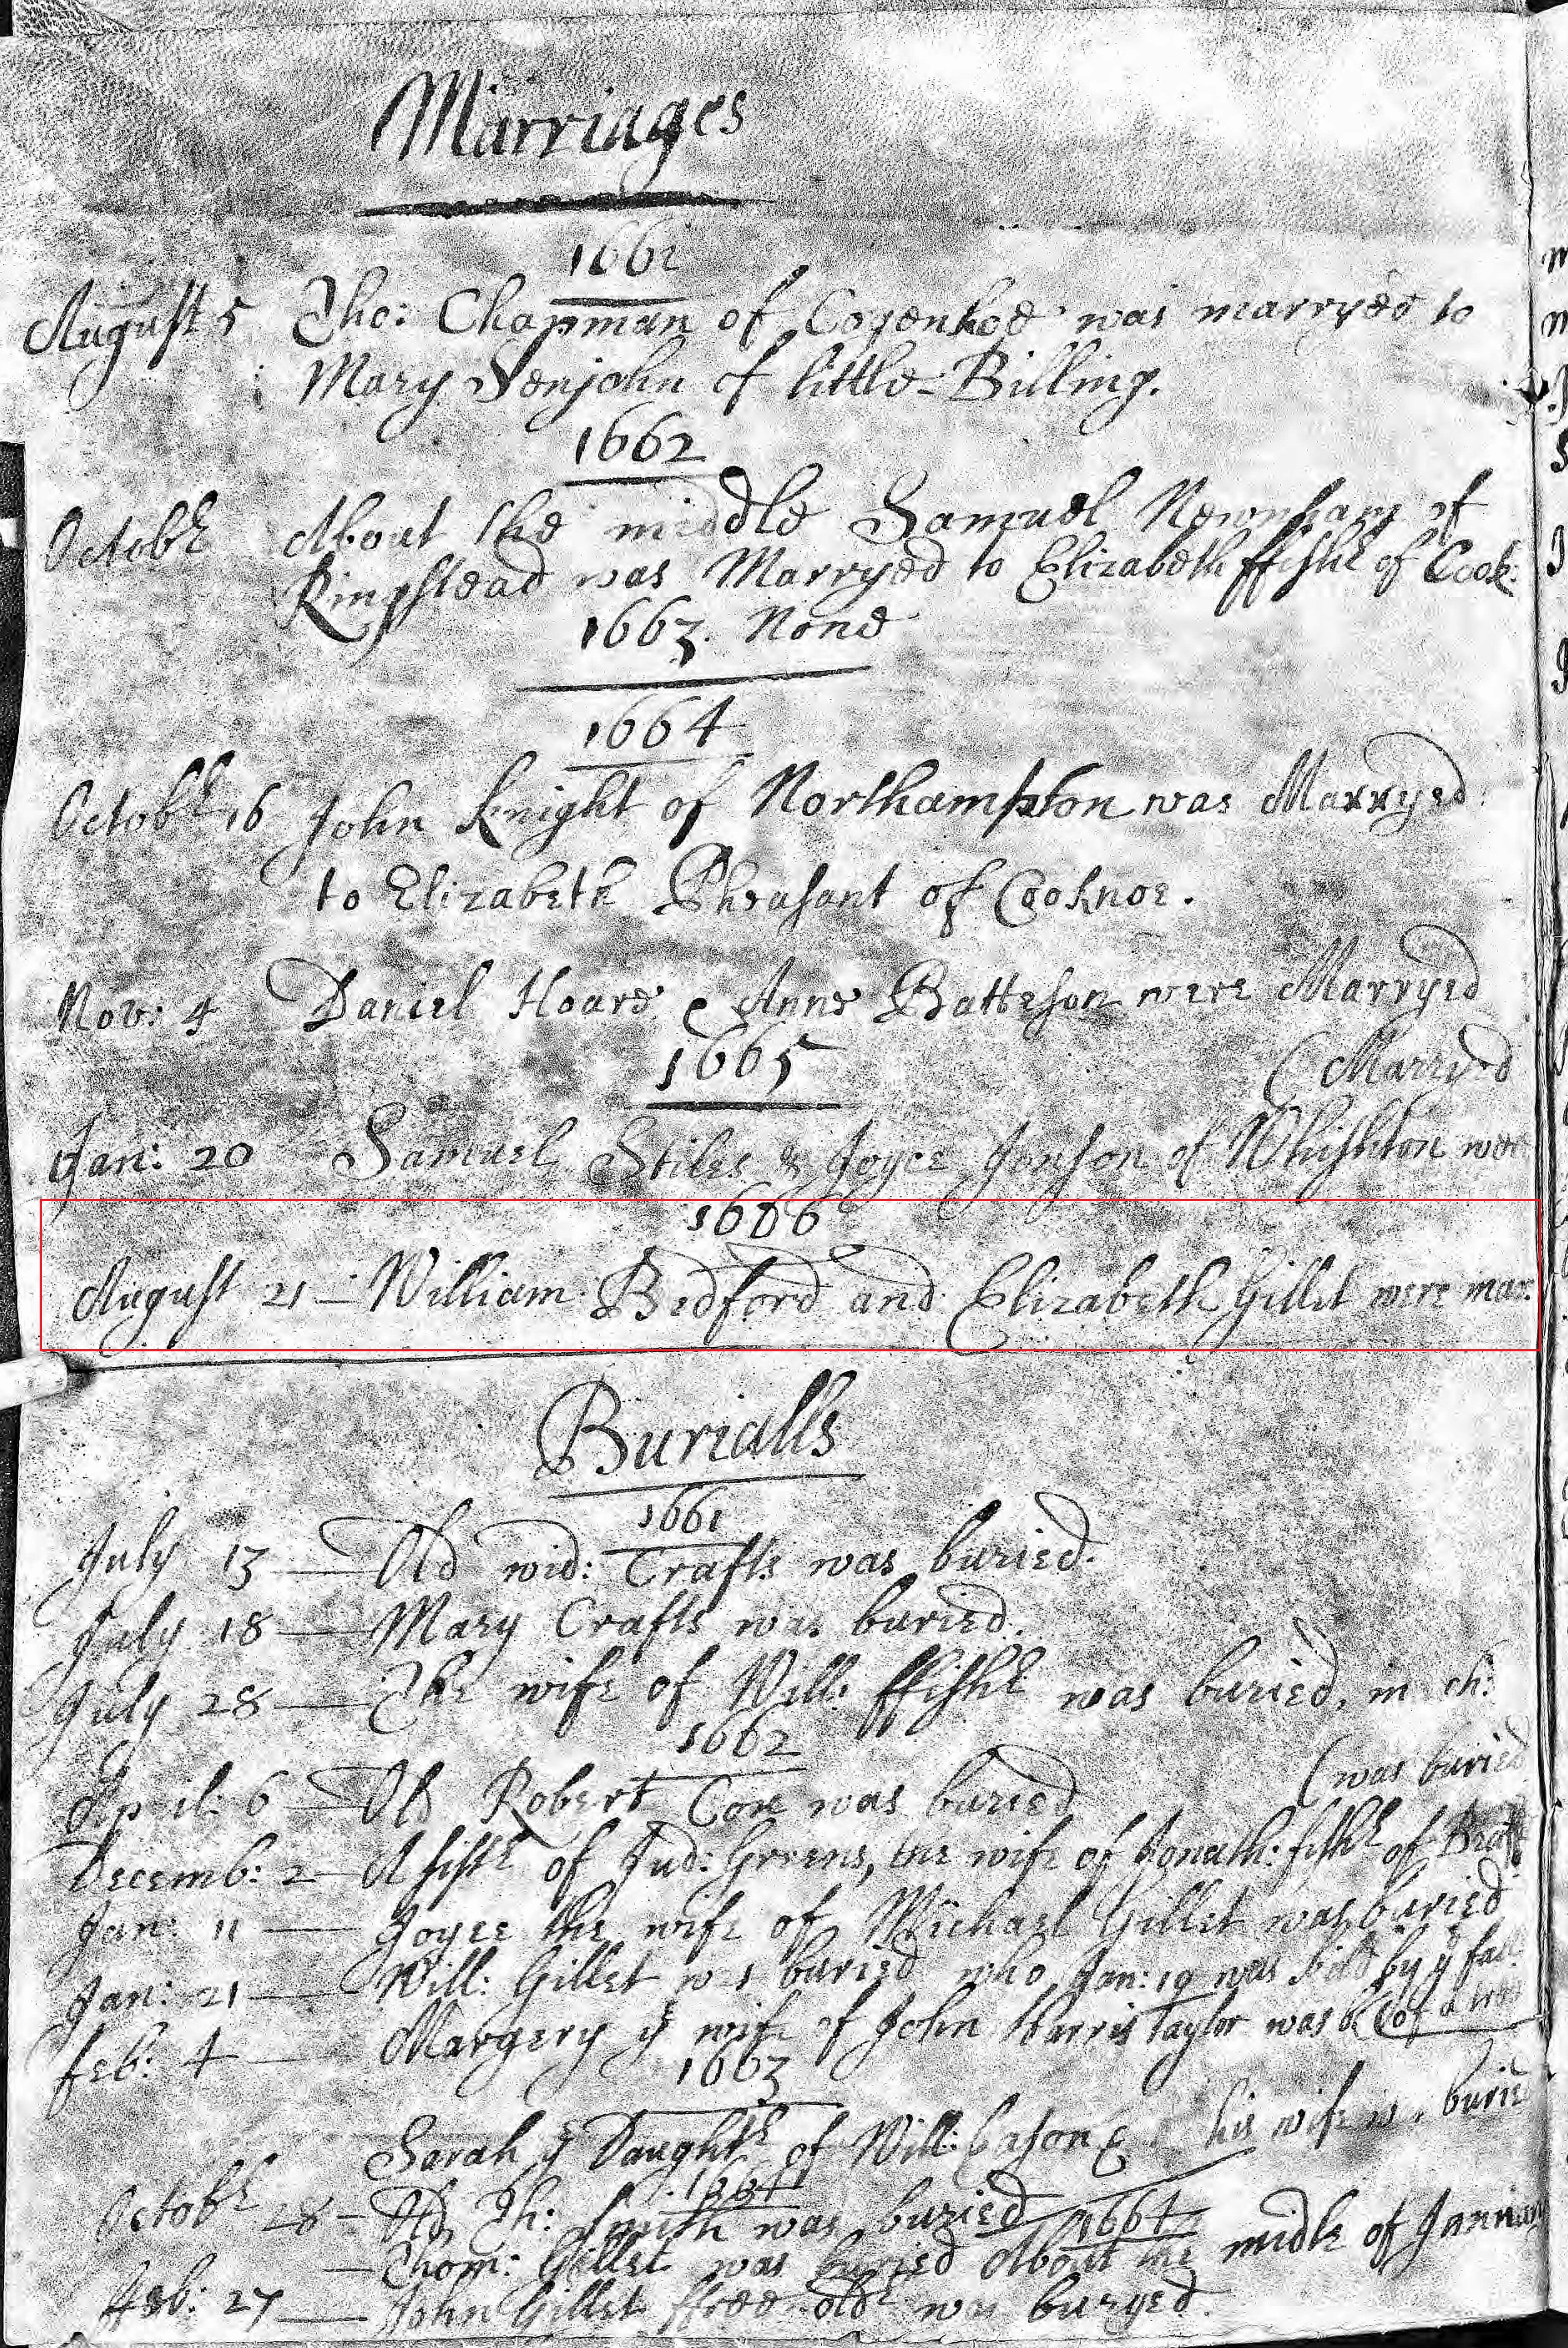 Marriages
1661
August 5 Tho: Chapman of Cogenhoe was marryed to
Mary Senjohn of little-Billing.
1662
Octobr About the middle Samuel Newnham of
Ringstead was Marryed to Elizabeth ffishr of Cook:
1663. None
1664
Octobr 16 John Knight of Northampton was Marryed
to Elizabeth Pheasant of Cooknoe.
Nov: 4 Daniel Hoare & Anne Batteson were Marryed
1665
(Marryed
Jan: 20 Samuel Stiles & Joyce Jonson of Whishton were
1666
August 21 — William Bedford and Elizabeth Gillet were mar:
Burialls
1661
July 13 — Old wid: Crafts was buried.
July 18 — Mary Crafts was buried.
July 28 — The wife of Will: ffishr was buried, in ch:
1662
(was buried
April: 6 — Old Robert Coxe was buried
Decemb: 2 — A sistr of Jud: Greens, the wife of Jonath: fishr of
Jan: 11 — Joyce the wife of Michael Gillet was buried
Jan: 21 — Will: Gillet was buried who Jan: 19 was kild by ye fall
Feb: 4 — Margery ye wife of John Harris Taylor was b (of a
1663
Sarah ye Daughtr of Will: Cason & his wife w. buried
1664
Octobr 28 — Old Th: Smith was buried
1664
— Thom: Gillet was buried About the midle of January
Feb: 27 — John Gillet ffree-oldr was buryed.